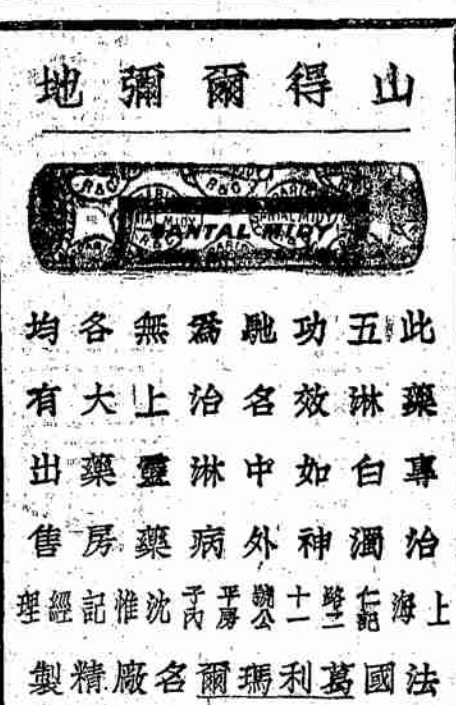 山得爾彌地
SANTAL MIDY
此藥專治
五淋白濁
功效如神
馳名中外
爲治淋病
無上靈藥
各大藥房
均有出售
上海仁記路二十一號公平房子內沈惟記經理
法國葛利瑪爾名廠精製